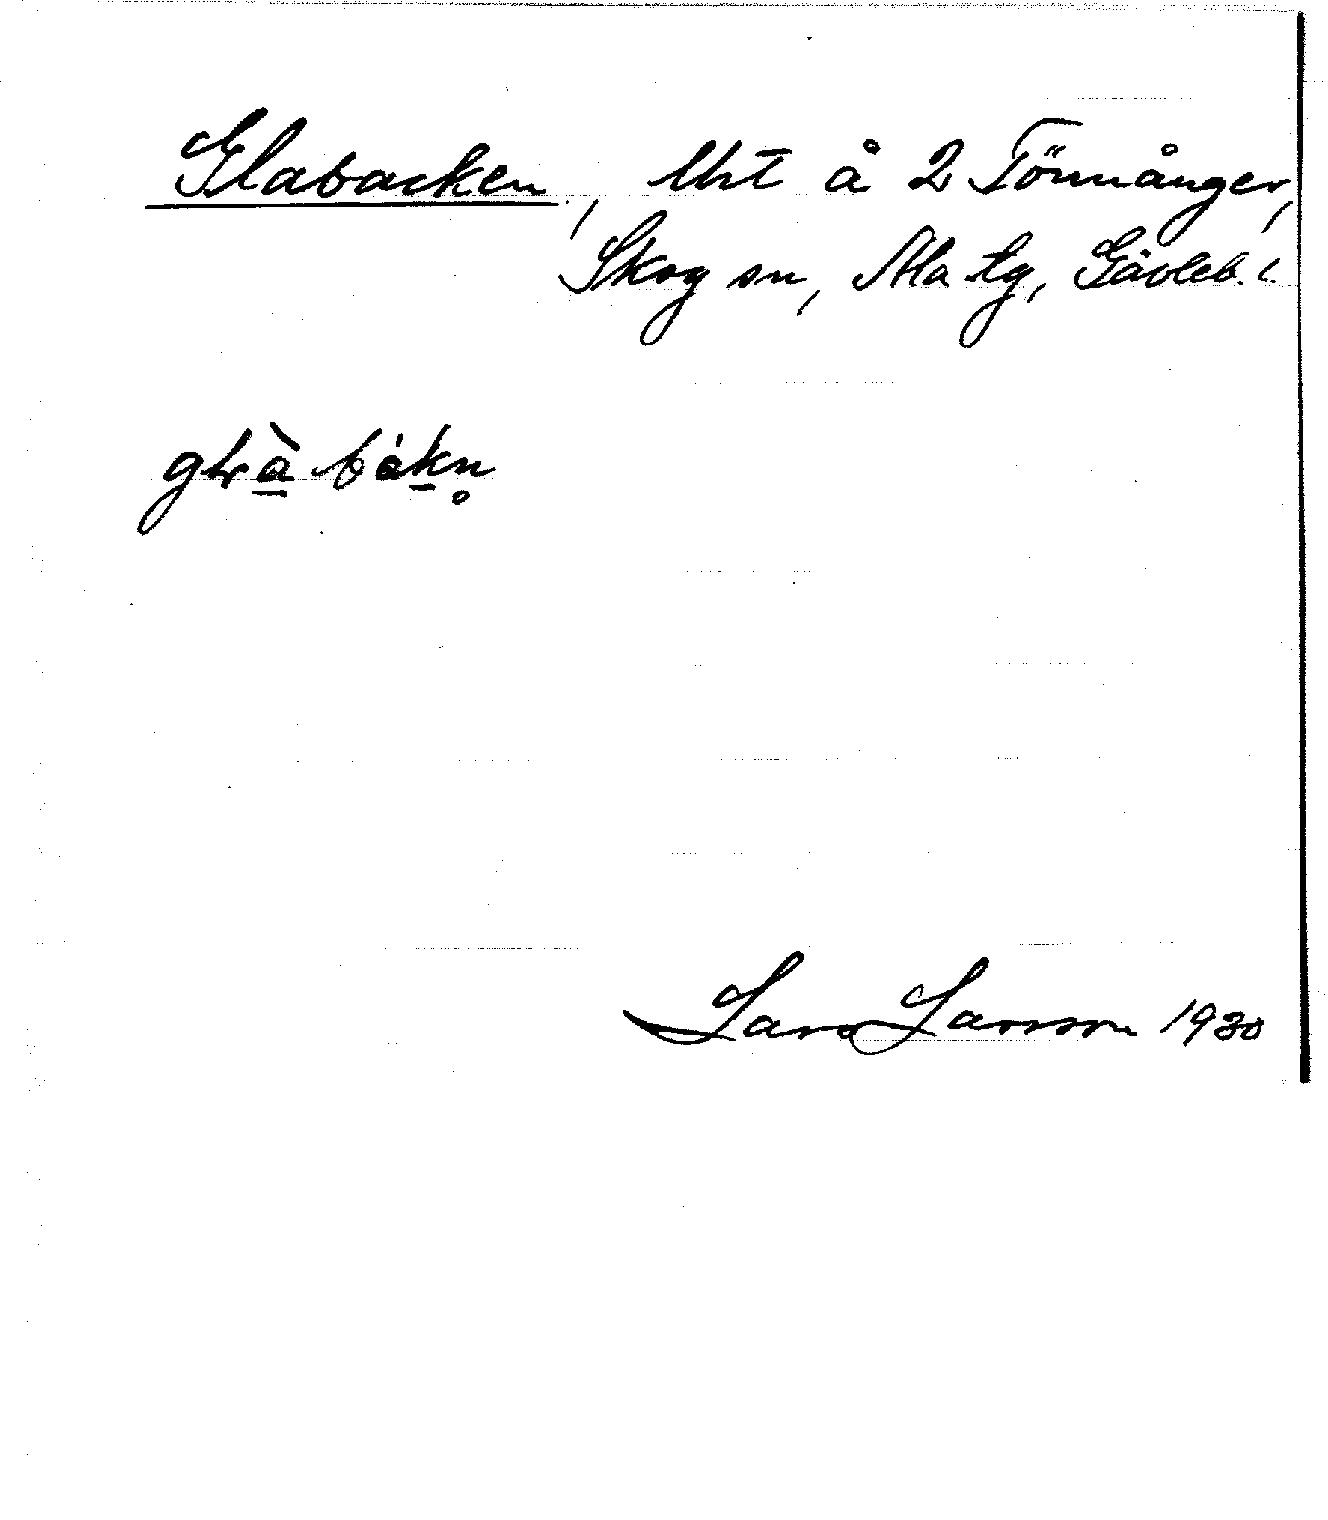 Glabacken, lht å 2 Tönnånger,
Skog sn, Ala tg, Gävleb. l.
glàbákn̥
Lars Larsson 1930